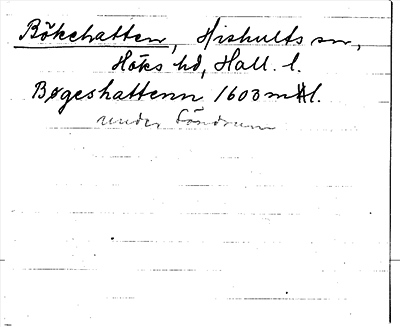 Bökehatten, Hishults sn,
Höks hd, Hall. l.
Bøgeshattenn 1603 mHl.
under Göndrum